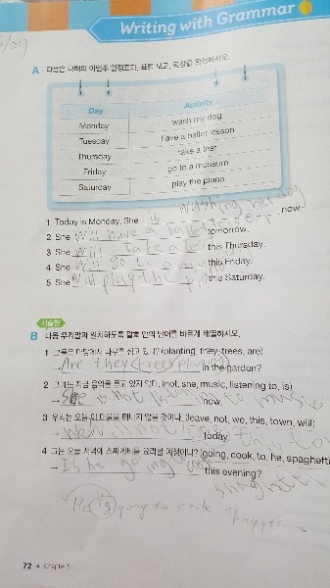 Writing with Grammar
A 다음은 나래의 이번주 일정표다. 표를 보고, 문장을 완성하시오.
Day Activity
Monday wash my dog
Tuesday have a ballet lesson
Thursday take a test
Friday go to a museum
Saturday play the piano
1 Today is Monday. She is washing now.
2 She will have a ballet tomorrow.
3 She will take a this Thursday.
4 She will go to a this Friday.
5 She will play the this Saturday.
서술형
B 다음 우리말과 일치하도록 괄호 안의 단어를 바르게 배열하시오.
1 그들은 마당에서 나무를 심고 있니? (planting, they, trees, are)
→ Are they trees planting in the garden?
2 그녀는 지금 음악을 듣고 있지 않다. (not, she, music, listening to, is)
→ She is not listening to music now.
3 우리는 오늘 이 마을을 떠나지 않을 것이다. (leave, not, we, this, town, will)
→ We will not this today.
4 그는 오늘 저녁에 스파게티를 요리할 예정이니? (going, cook, to, he, spaghetti
→ Is he going this evening?
He is going to cook
72 • Chapter 5